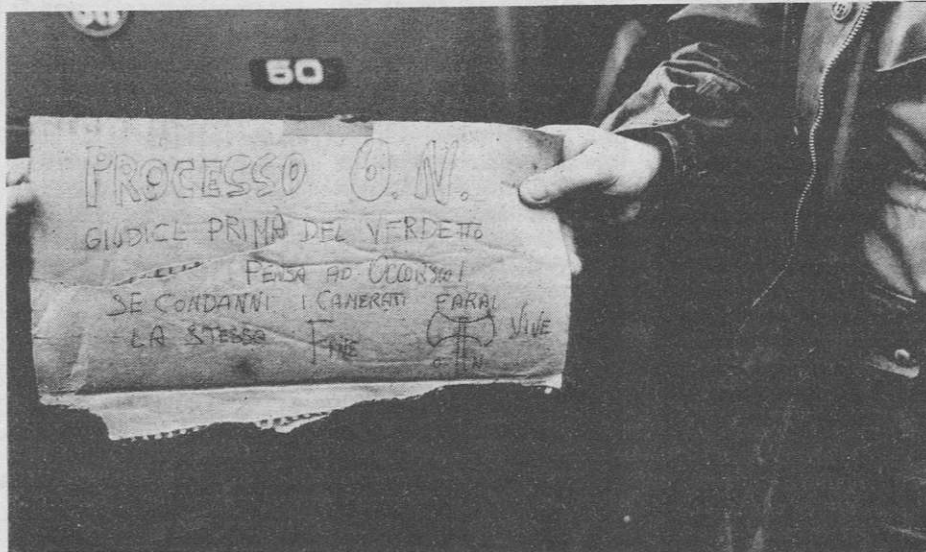 50
PROCESSO O.N.
GIUDICE PRIMA DEL VERDETTO
PENSA AD OCCORSIO!
SE CONDANNI I CAMERATI FARAI
LA STESSA FINE
O N VIVE